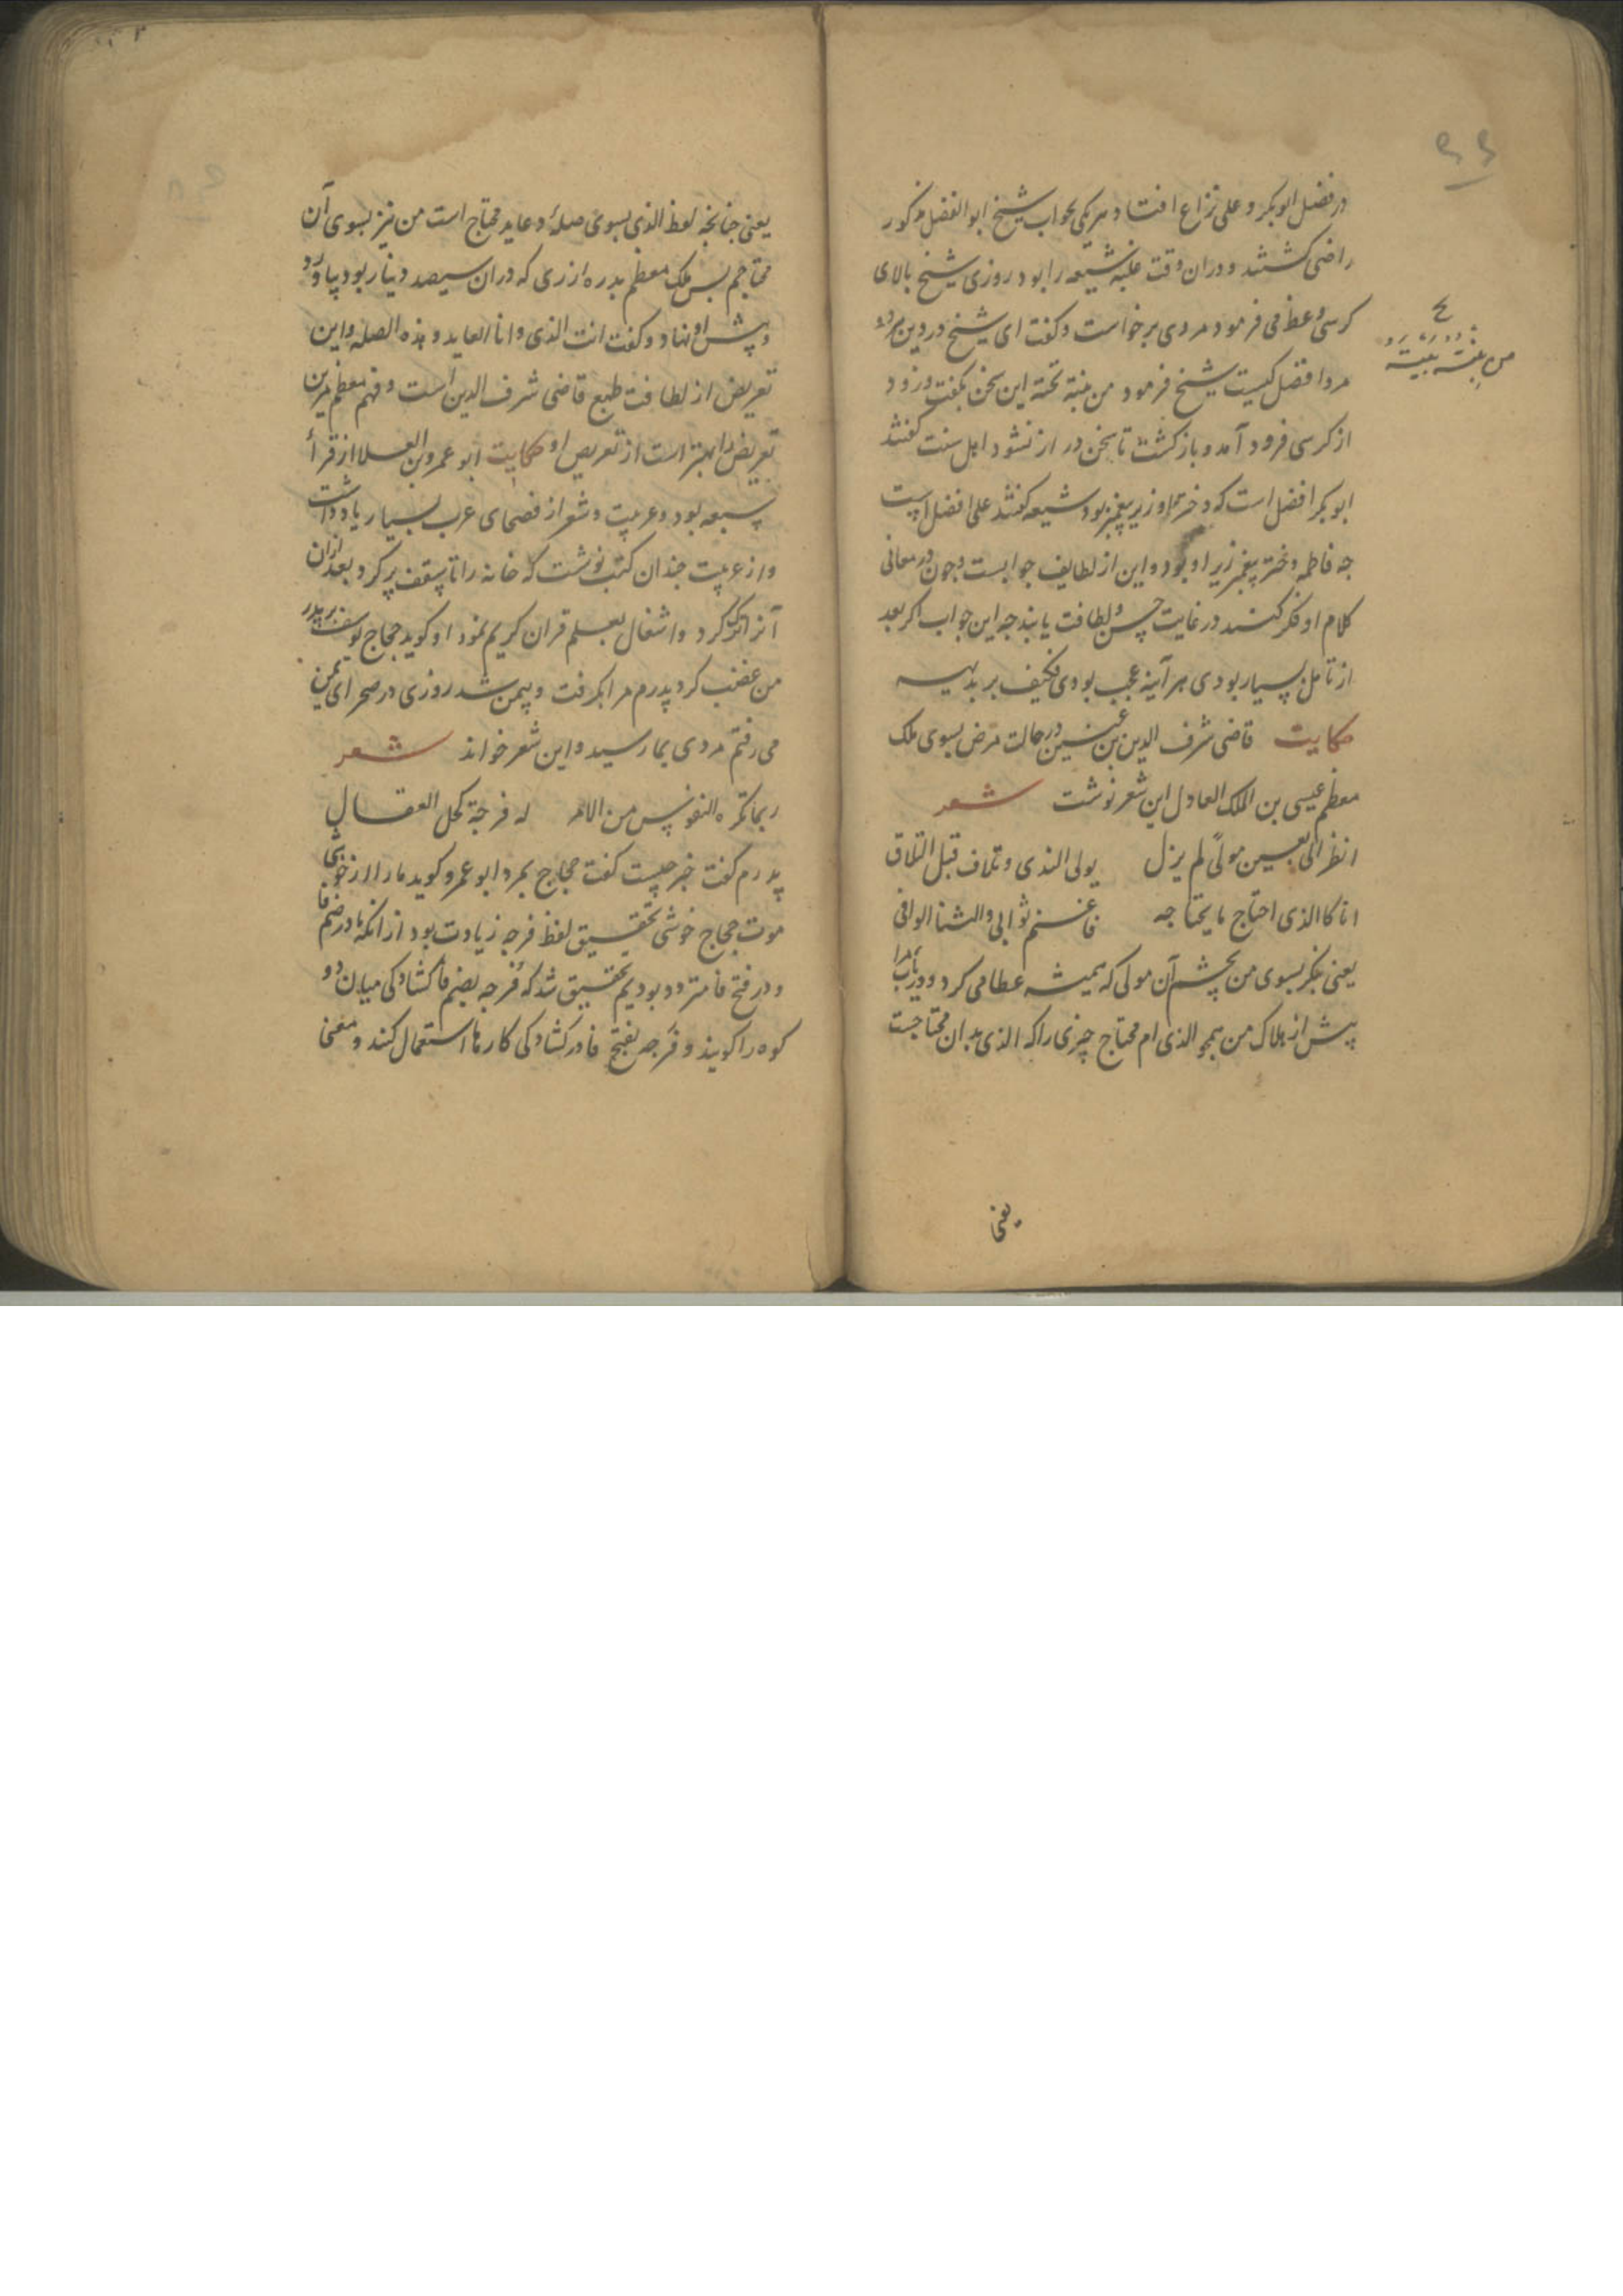 در فضل ابوبکر و علی نزاع افتاد و هریکی بجواب شیخ ابوالفضل مذکور
راضی کشتند و دران وقت غلبه شیعه را بود روزی شیخ بالای
کرسی وعظ می فرمود مردی برخواست و کفت ای شیخ در دین
مردا فضل کیست شیخ فرمود من بنته تحته این سخن بکفت و زود
از کرسی فرود آمد و باز کشت تا سخن در از نشود اهل سنت کفتند
ابوبکر افضل است که دختر او زیر پیغمبر بود شیعه کفتند علی افضل است
چه فاطمه دختر پیغمبر زیر او بود و این از لطایف جوابست و چون در معانی
کلام او فکر کنند در غایت حسن و لطافت یابند چه این جواب اکر بعد
از تامل بسیار بودی هر آینه عجب بودی فکیف بر بدیهه
حکایت قاضی شرف الدین بن عنین در حالت مرض بسوی ملک
معظم عیسی بن الملک العادل این شعر نوشت شعر
انظر الی بعین مولی لم یزل یولی الندی و تلاف قبل التلاق
انا کالذی احتاج ما یحتاجه فاغنم ثوابی والثنا الوافی
یعنی بنکر بسوی من بچشم آن مولی که همیشه عطا می کرد و دریاب مرا
پیش از هلاک من همچو الذی ام محتاج چیزی را که الذی بدان محتاجست
یعنی
یعنی چنانچه لفظ الذی بسوی صله و عاید محتاج است من نیز بسوی آن
محتاجم پس ملک معظم بدره از زری که دران سیصد دینار بود بیاورد
و پیش او نهاد و کفت انت الذی و انا العاید و هذه الصله و این
تعریض از لطافت طبع قاضی شرف الدین است و فهم معظم مرین
تعریض را بهتر است از تعریض او حکایت ابو عمرو بن العلا از قرأ
سبعه بود و عربیت و شعر از فصحای عرب بسیار یاد داشت
و از عربیت چندان کتب نوشت که خانه را تا سقف پر کرد بعد ازان
آنرا ترک کرد و اشغال بتعلم قران کریم نمود او کوید حجاج یوسف بر پدر
من غضب کرد پدرم مرا بکرفت و بیمن شد روزی در صحرای یمن
می رفتم مردی بما رسید و این شعر خواند شعر
ربما تکره النفوس من الامر له فرجة کحل العقال
پدرم کفت خبر چیست کفت حجاج بمرد ابو عمرو کوید مارا از خوشی
موت حجاج خوشی تحقیق لفظ فرجه زیادت بود از انکه ما در ضم فا
و در فتح فا متردد بودیم تحقیق شد که فُرجه بضم فا کشادکی میان دو
کوه را کویند و فَرجه بفتح فا در کشادکی کارها استعمال کنند و معنی